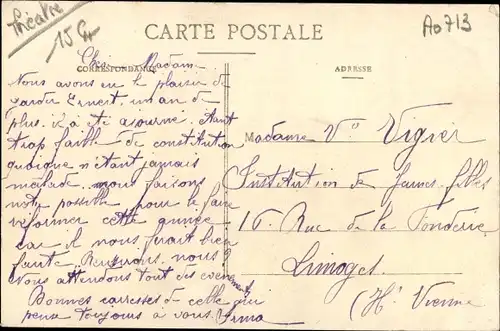 Théâtre
15 Gr
Ao713
CARTE POSTALE
CORRESPONDANCE
ADRESSE
Chère Madame
Nous avons eu le plaisir de
garder Ernest un an de
plus. il a été ajourné. étant
trop faible de constitution
quoique n'étant jamais
malade. nous faisons
notre possible pour le faire
réformer cette année
car il nous ferait bien
faute. nous
Nous attendons tout des événements
Bonnes caresses de celle qui
pense toujours à vous. Irma
Madame Vve Vigier
Institution de Jeunes filles
16. Rue de la Fonderie
Limoges
(Hte Vienne